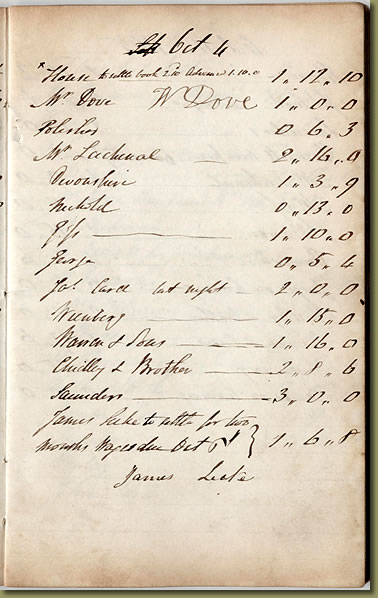 Oct 4
× House to settle book 2.10 Advanced 1.10.0 1 „ 12 „ 10
Mr Dove W Dove 1 „ 0 „ 0
Polishers 0 „ 6 „ 3
Mr Lachenal — 2 „ 16 „ 0
Devonshire 1 „ 3 „ 9
0 „ 13 „ 0
1 „ 10 „ 0
0 „ 5 „ 4
last night — 2 „ 0 „ 0
1 „ 15 „ 0
Warren & Sons — 1 „ 16 „ 0
Chidley & Brother — 2 „ 8 „ 6
Saunders — 3 „ 0 „ 0
James Leeke to settle for two
months Wages due Oct } 1 „ 6 „ 8
James Leeke